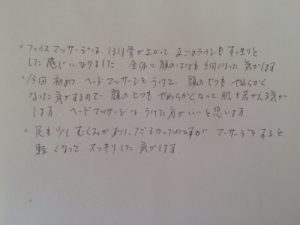 ・フェイスマッサージは、ほほ骨が上がって、あごのラインもすっきりと
した感じになりました。全体に顔の 細くなった気がします
・今回初めて、ヘッドマッサージをうけて、頭のひふもやわらかく
なった気がするので、顔のひふもやわらかくなって、肌も 気が
します。ヘッドマッサージは うけた方がいいと思います
・足も少しむくみがあり、だるかったのですが マッサージをすると
軽くなって、スッキリした気がします。